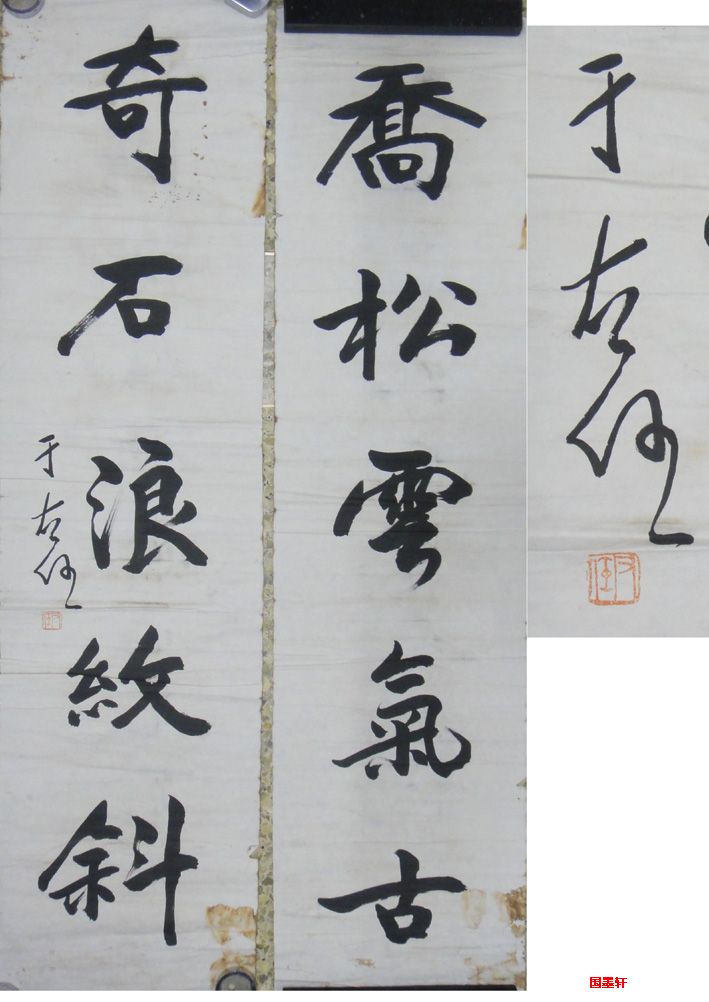 喬松雲氣古
奇石浪紋斜
于右任
于右任
右任
国墨轩